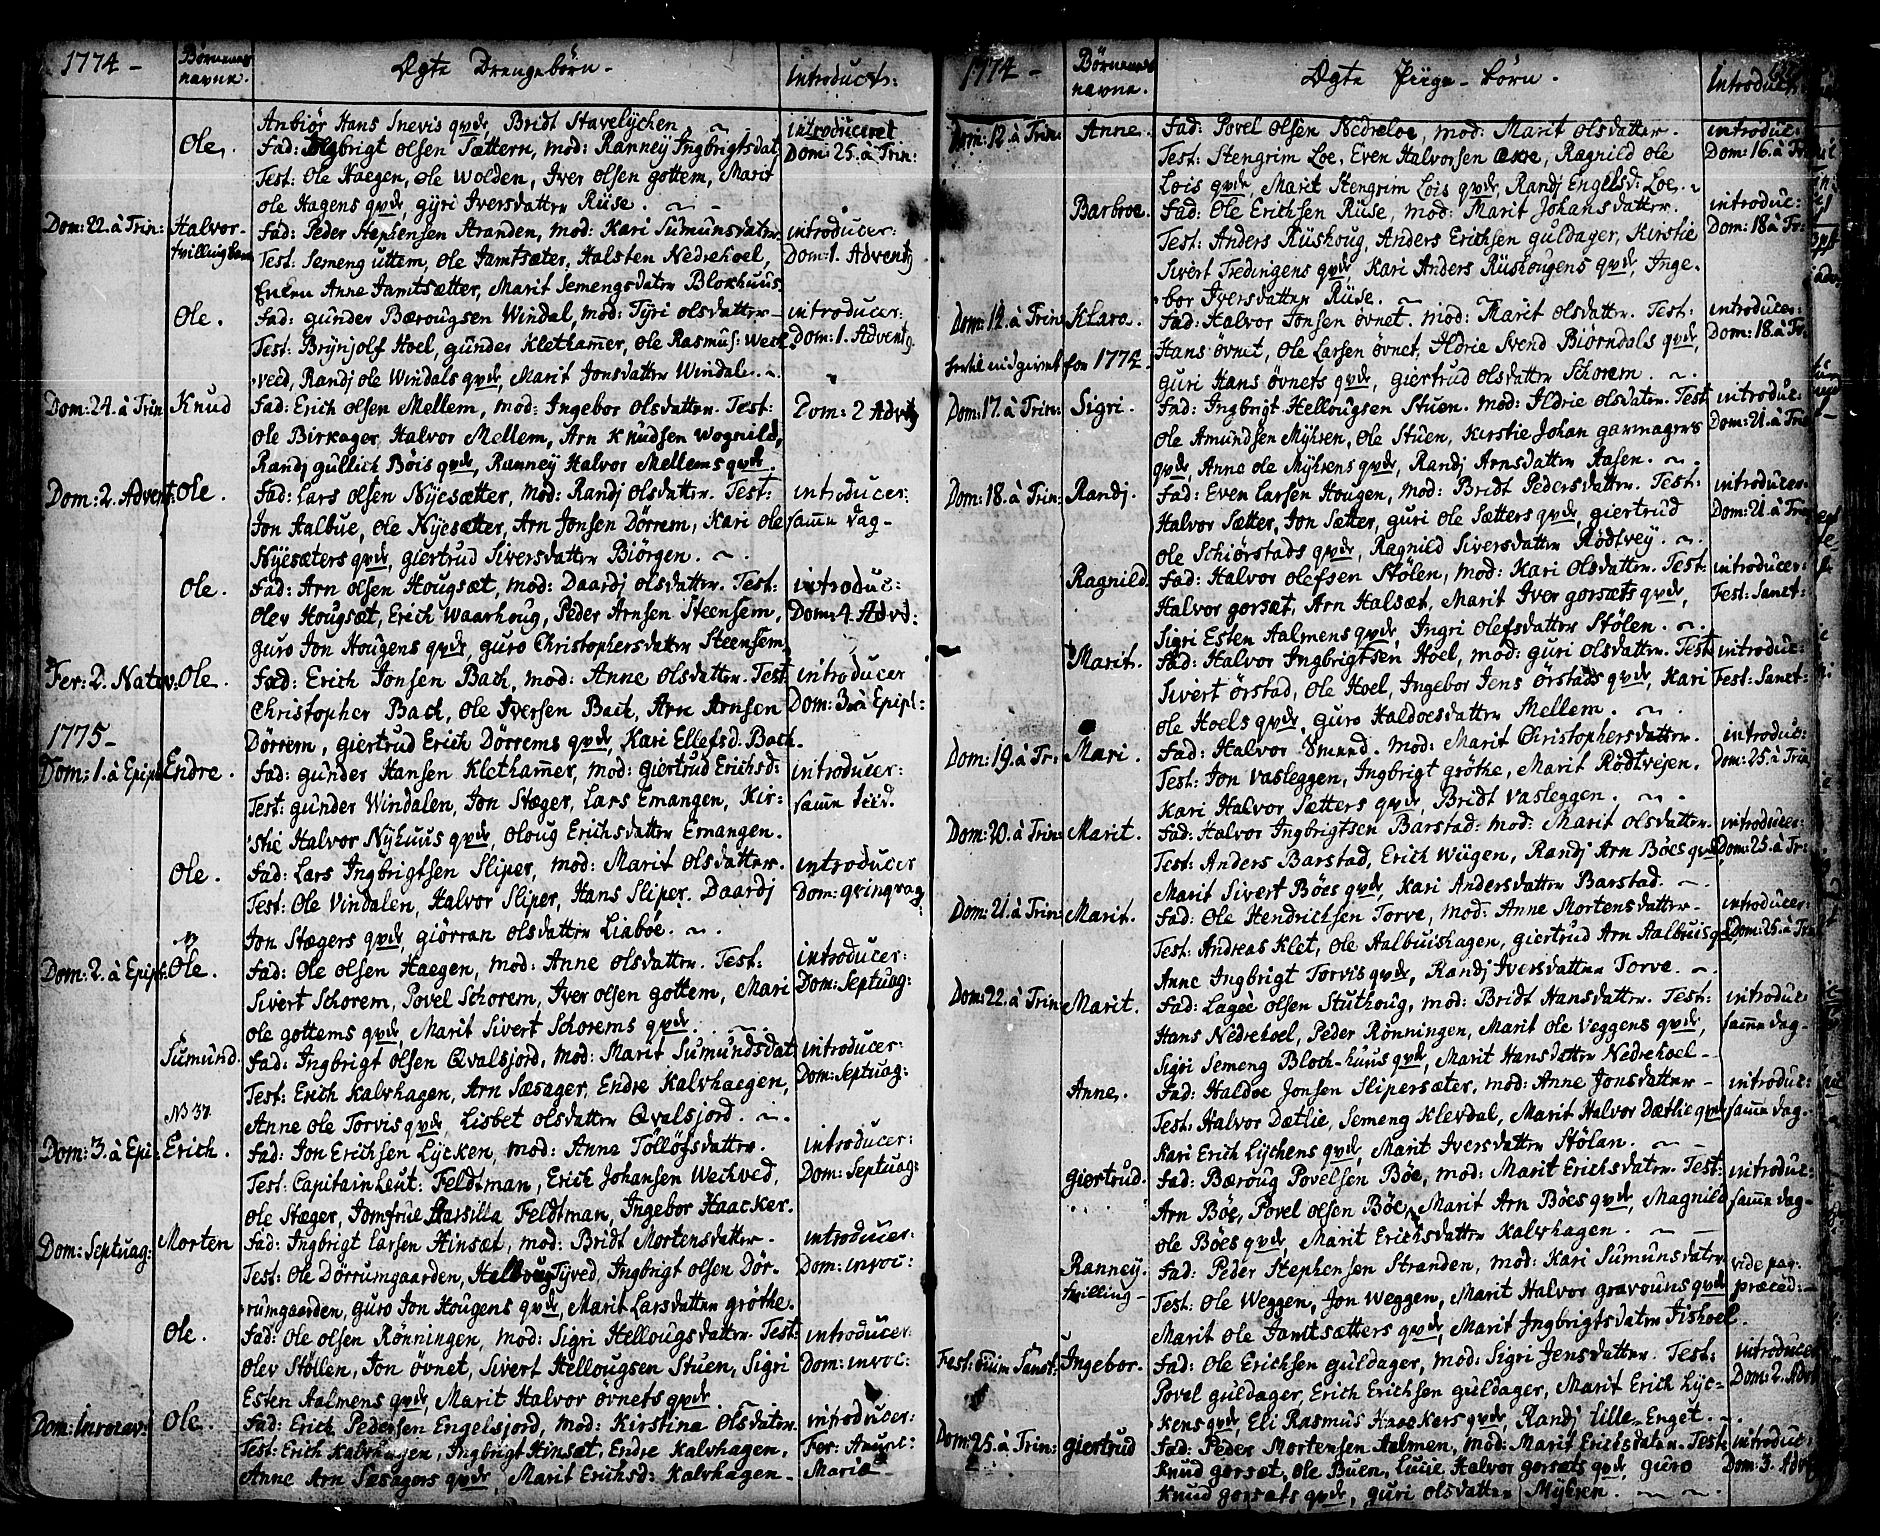 1774 - Børnenes navne. Ægte Drengebørn. introduct:
Anbiør Hans Snevis qvde, Bridt Stavelychen
Ole. Fad: Ingbrigt olsen Sættern, mod: Ranney Ingbrigtsdat introduceret
Test: Ole Haegen, ole Wolden, Iver olsen gottem, Marit Dom: 25. à Trin:
ole Hagens qvde, gÿri Iversdatter Rüse.
Dom: 22. à Trin: Halvor- Fad: Peder Stephensen Stranden, mod: Kari Sumunsdatter introducer:
tvillingbarn Test: Semeng uttem, Ole Jamtsæter, Halsten Nedrehoel, Dom: 1. Adventq
Enken Anne Jamtsætter, Marit Semengsdater Blokhuus
Ole. Fad: gunder Bærougsen Windal, mod: Tÿri olsdatter- introducer:
Test: Brÿnjolf Hoel, gunder Klethammer, ole Rasmus: West Dom: 1. Adventq
ved, Randj ole Windals qvde, Marit Jonsdatter Windale. ~.
Dom: 24. à Trin Knud Fad: Erich olsen Mellem, mod: Ingebor olsdatter. Test: Dom: 2 Advtq
Ole Birkager, Halvor Mellem, Arn Knudsen Wognild,
Randj gullich Böis qvde, Ranney Halvor Mellems qvde
Dom: 2. Advent: Ole. Fad: Lars olsen Nÿesætter, mod: Randj olsdatter. Test: introducer:
Jon Aalbue, ole Nÿesætter, Arn Jonsen Dörrem, Kari ole samme dag-
Nÿesæters qvde, giertrud Siversdatter Biörgen. ~
Ole. Fad: Arn olsen Hougsæt, mod: Daardj olsdatter. Test: introduc:
Olev Hougsæt, Erich Waarhoug, Peder Arnsen Steensem, Dom: 4. Advd:
guro Jon Hougens qvde, guro Christophersdatter Steensem
Fer: 2. Nativ: Ole. Fad: Erich Jonsen Bach, mod: Anne olsdatter. Test introducer
Christopher Back, ole Iversen Back, Arn Arnsen Dom: 3 à Epipl:
1775- Dörrem, giertrud Erich Dörrems qvde, Kari Ellefsd. Bach.
Dom: 1. à Epiph Endre. Fad: gunder Hansen Klethammer, mod: giertrud Erichsd: introducer:
Test: gunder Windalen, Jon Stæger, Lars Emangen, Kir- samme tiid.
stie Halvor Nÿhuus qvde, oloug Erichsdatter Emangen.
Ole. Fad: Lars Ingbrigtsen Sliper, mod: Marit olsdatter. introducer
Test: Ole Vindalen, Halvor Sliper, Hans Sliper. Daardj Dom: qvinqvag:
Jon Stægers qvde, giörran olsdatter Liaböe. ~.
Dom: 2. à Epiph: Ole. Fad: Ole olsen Haegen, mod: Anne olsdatter. Test: introducer:
Sivert Schorem, Povel Schorem, Iver olsen gottem, Mari Dom: Septuag:
ole gottems qvde, Marit Sivert Schorems qvde.
Sumund. Fad: Ingbrigt olsen Qvalsjord, mod: Marit Sumundsdat introducer:
Test: Erich Kalvhagen, Arn Sæsager, Endre Kalvhaegen, Dom: Septuag:
N 37 Anne ole Torvis qvde, Lisbet olsdatter Qvalsjord. ~.
Dom: 3. à Epi: Erich. Fad: Jon Erichsen Lÿcken, mod: Anne Tollöfsdatter. introducer:
Test: Capitain Leut: Feldtman, Erich Johansen Weckved, Dom: Septuag:
Ole Stæger, Jomfrue Feldtman, Ingebor Haacker.
Dom: Septuag: Morten Fad: Ingbrigt Larsen Hinsæt, mod: Bridt Mortensdatter. introducer:
Test: Ole Dörrumgaarden, Helloug Tÿved, Ingbrigt olsen Dör- Dom: invoc:
rumgaarden, guro Jon Hougens qvde, Marit Larsdatter gröthe.
Ole. Fad: Ole olsen Rönningen, mod: Sigri Hellougsdatter. Test: introducer:
Olev Stöllen, Jon övnet, Sivert Hellougsen Stuen, Sigri Dom: invoc:
Esten Aalmens qvde, Marit Halvor övnets qvde.
Dom: Invocav: Ole. Fad: Erich Pedersen Engelsjord, mod: Kirstina Olsdater. introducer:
Test: Erich Kalvhagen, Ingbrigt Hinsæt, Endre Kalvhagen, Fer: Anunc:
Anne Arn Sæsagers qvde, Marit Erichsd: Kalvhagen- Mariæ-
1774- Børnenes navne. Ægte Piige-börn. Introduct
Dom: 12. à Trin: Anne. Fad: Povel Olsen Nedreloe, mod: Marit olsdatter. introduc:
Test: Stengrim Loe, Even Halvorsen, Ragnild ole Dom: 16. à Tr
Lois qvde, Marit Stengrim Lois qvde, Randj Engelsd: Loe. ~
Barbroe. Fad: Ole Erichsen Rüse, mod: Marit Johansdatter. introduc:
Test: Anders Rüshoug, Anders Erichsen guldager, Kirstie Dom: 18 à Tr:
Sivert Tredingens qvde, Kari Anders Rüshougens qvde, Inge-
bor Iversdatter Rüse. ~
Dom: 12. à Trin: Klara. Fad: Halvor Jonsen övnet. mod: Marit olsdatter. Test: introducer:
Hans övnet, Ole Larsen övnet, Ildrie Svend Biörndals qvde, Dom: 18. à Tr.
for 1774- guri Hans övnets qvde, giertrud olsdatter Schorem. ~.
Dom: 17. à Trin: Sigri. Fad: Ingbrigt Hellougsen Stuen. mod: Ildrie olsdater. Test introduc:
Ole Amundsen Mÿhren, Ole Stuen, Kirstie Johan garmagers Dom: 21. à Trin
qvde, Anne ole Mÿhrens qvde, Randj Arnsdatter Aasen. ~.
Dom: 18. à Trin: Randj. Fad: Even Larsen Hougen, mod: Bridt Pedersdatter. Test: introducer.
Halvor Sætter, Jon Sætter, guri Ole Sætters qvde, giertrud Dom: 21. à Trin
Ole Schiörstads qvde, Ragnild Siversdatter Rödtvey. ~.
Ragnild Fad: Halvor olefsen Stölen, mod: Kari olsdatter. Test: introducer:
Halvor gorsæt, Arn Halsæt, Marit Iver gorsæts qvde, Fest: Sanct:
Sigri Esten Aalmens qvde, Ingri Olefsdatter Stölen. ~.
Marit. Fad: Halvor Ingbrigtsen Hoel, mod: guri olsdatter. Test introduc:
Sivert örstad, ole Hoel, Ingebor Jens örstads qvde, Kari Fest: Sanct:
ole Hoels qvde, guro Haldoesdatter Mellem. ~.
Dom: 19. à Tr: Mari. Fad: Halvor Smund. mod: Marit Christophersdatter. introduc:
Test: Jon Vasleggen, Ingbrigt gröthe, Marit Rödtveien. Dom: 25. à Trin
Kari Halvor Sætters qvde, Bridt Vasleggen. ~.
Dom: 20. à Trin: Marit. Fad: Halvor Ingbrigtsen Barstad: mod: Marit olsdatter. introducer:
Test: Anders Barstad, Erich Wügen, Randj Arn Böes qvde Dom: 25. à Tr:
Marit Sivert Böes qvde, Kari Andersdatter Barstad. ~.
Dom: 21. à Trin: Marit. Fad: Ole Hendrichsen Torve, mod: Anne Mortensdatter- introducer:
Test: Andreas Klet, Ole Aalbuishagen, giertrud Arn Aalbuis qv. Dom: 25. à Trin
Anne Ingbrigt Torvis qvde, Randj Iversdatter Torve. ~.
Dom: 22. à Trin: Marit. Fad: Lagee olsen Stuthoug, mod: Bridt Hansdatter. Test: introduc:
Hans Nedrehoel, Peder Rönningen, Marit Ole Veggens qvde, samme dag-
Sigri Semeng Bloch-huus qvde, Marit Hansdatter Nedrehoel-
Anne. Fad: Haldoe Jonsen Slipersæter, mod: Anne Jonsdatter- introduc:
Test: Halvor Dætlie, Semeng Klevdal, Marit Halvor Dætlie qvde samme dag-
Kari Erich Lÿchens qvde, Marit Iversdatter Stölan. ~
Giertrud. Fad: Bæroug Povelsen Böe, mod: Marit Erichsdater. Test: introduc:
Arn Böe, Povel olsen Böe, Marit Arn Böes qvde, Magnild samme dag-
ole Böes qvde, Marit Erichsdatter Kalvhagen. ~
Ranney. Fad: Peder Stephensen Stranden, mod: Kari Sumunsdater vide pag.
tvilling- Test: Ole Weggen, Jon Weggen, Marit Halvor gravouns qvde præced:-
Marit ole Jamtsætters qvde, Marit Ingbrigtsdater Fiskoel.
Fest: omm Sanct: Ingebor. Fad: Ole Erichsen guldager, mod: Sigri Jensdatter. Test: introducer
Povel guldager, Erich Erichsen guldager, Marit Erich Lyc- Dom: 2. Adv
kens qvde, Eli Rasmus Haackers qvde, Randj lille-Enget. ~.
Dom: 25. à Trin: giertrud Fad: Peder Mortensen Aalmen, mod: Marit Erichsdater. Test: introduc:
Knud gorsæt, Ole Buen, Lucie Halvor gorsæts qvde, guro Dom: 3. Adv
Knud gorsæts qvde, guri olsdatter Mÿhren. ~